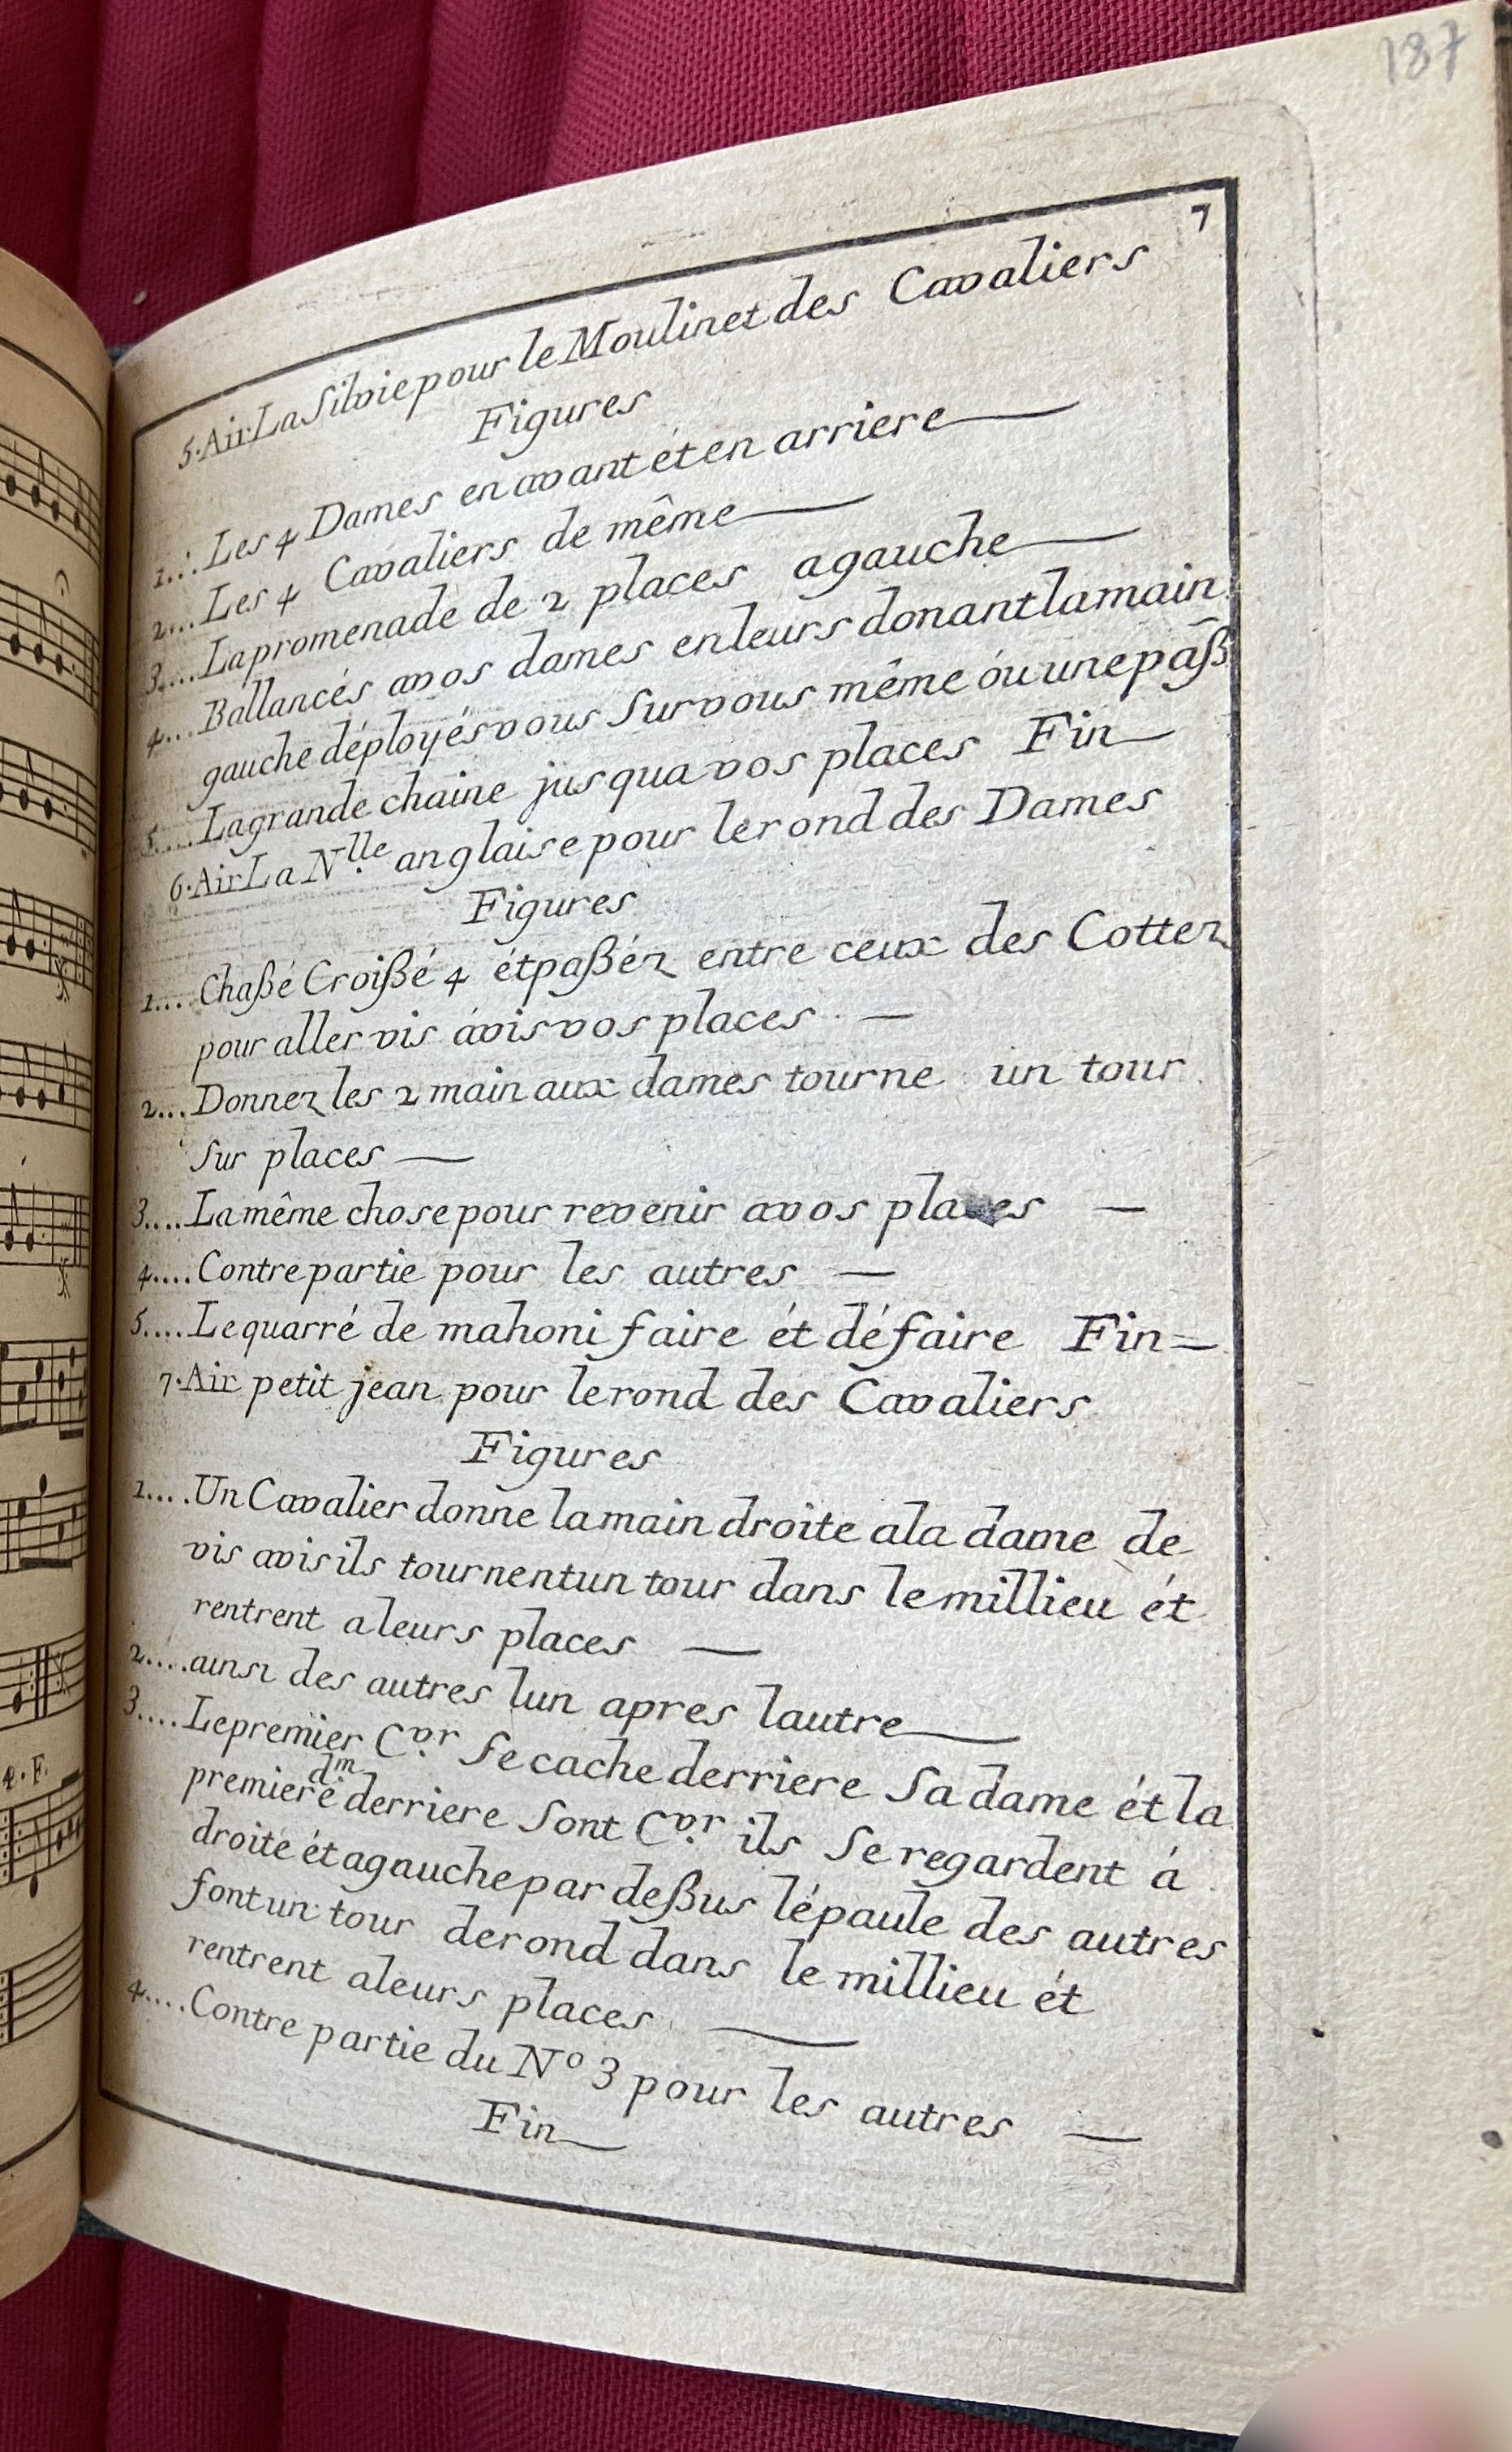 187
7
5. Air La Silvie pour le Moulinet des Cavaliers
Figures
1... Les 4 Dames en avant ét en arriere
2... Les 4 Cavaliers de même
3.... La promenade de 2 places a gauche
4... Ballancés a vos dames en leurs donant la main
gauche déployés vous Sur vous même óu une páß
5.... La grande chaine jus qua vos places Fin
6. Air La Nlle anglaise pour le rond des Dames
Figures
1.... Chaßé Croißé 4 ét paßéz entre ceux des Cottez
pour aller vis ávis vos places
2... Donnez les 2 main aux dames tourne un tour
Sur places
3.... La même chose pour revenir a vos places
4.... Contre partie pour les autres
5.... Le quarré de mahoni faire ét défaire Fin
7. Air petit jean pour le rond des Cavaliers
Figures
1.... Un Cavalier donne la main droite a la dame de
vis avis ils tournent un tour dans le millieu ét
rentrent a leurs places
2.... ainsi des autres lun apres lautre
3.... Le premier Cvr. Se cache derriere Sa dame ét la
premiere dm. derriere Sont Cvr. ils Se regardent á
droite ét a gauche par deßus lépaule des autres
font un tour de rond dans le millieu ét
rentrent a leurs places
4.... Contre partie du No 3 pour les autres
Fin